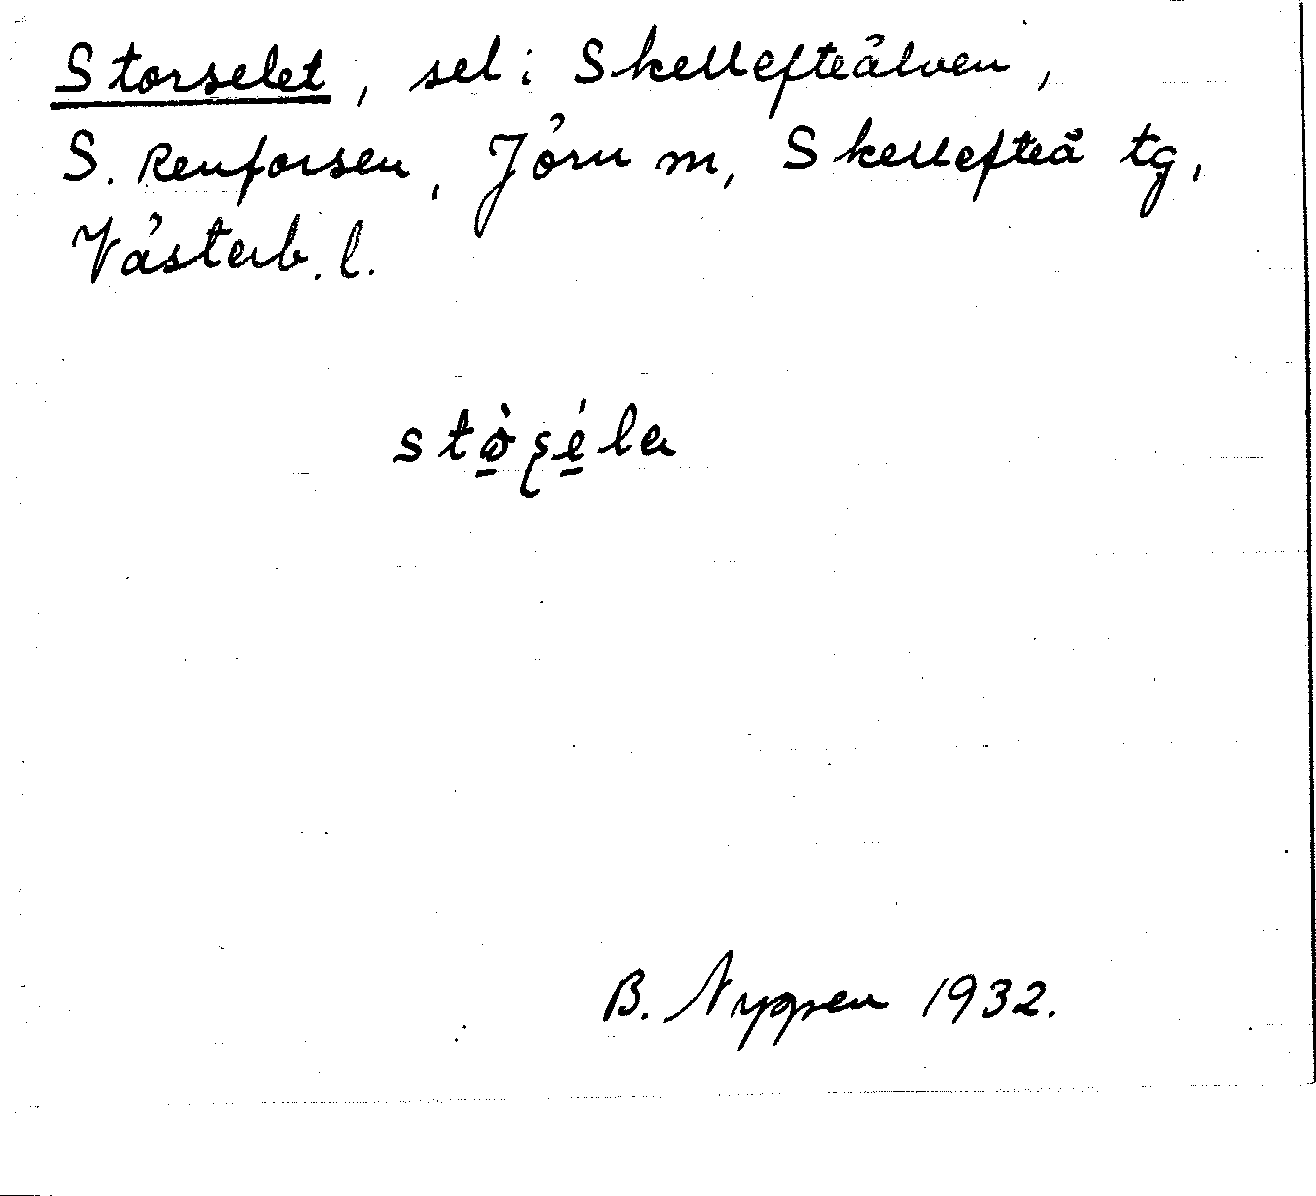 Storselet, sel i Skellefteälven,
S. Renforsen, Jörn sn, Skellefteå tg,
Västerb. l.
stò̱ʂé̱la
B. Nygren 1932.